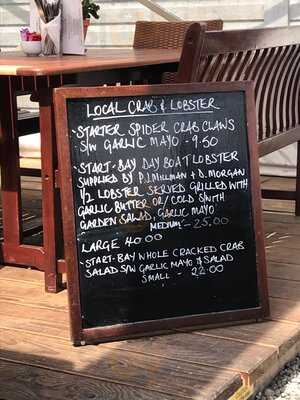 LOCAL CRAB & LOBSTER
STARTER SPIDER CRAB CLAWS
S/W GARLIC MAYO - 9.50
START-BAY DAY BOAT LOBSTER
SUPPLIED BY P.J.MILLMAN + D.MORGAN
1/2 LOBSTER SERVED GRILLED WITH
GARLIC BUTTER OR / COLD S/WITH
GARDEN SALAD, GARLIC MAYO
MEDIUM - 25.00
LARGE 40.00
START-BAY WHOLE CRACKED CRAB
SALAD S/W GARLIC MAYO & SALAD
SMALL - 22.00